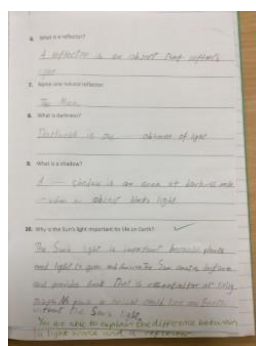 6. What is a reflector?
A reflector is an object that reflects
light.
7. Name one natural reflector.
The Moon.
8. What is darkness?
Darkness is the absence of light
9. What is a shadow?
A shadow is an area of darkness made
when an object blocks light
10. Why is the Sun's light important for life on Earth?
The Sun's light is important because plants
need light to grow and survive. The Sun
and provides heat. That is
plants or animal could live on Earth
without the Sun's light.
You are able to explain the difference between
a light source and a reflector.